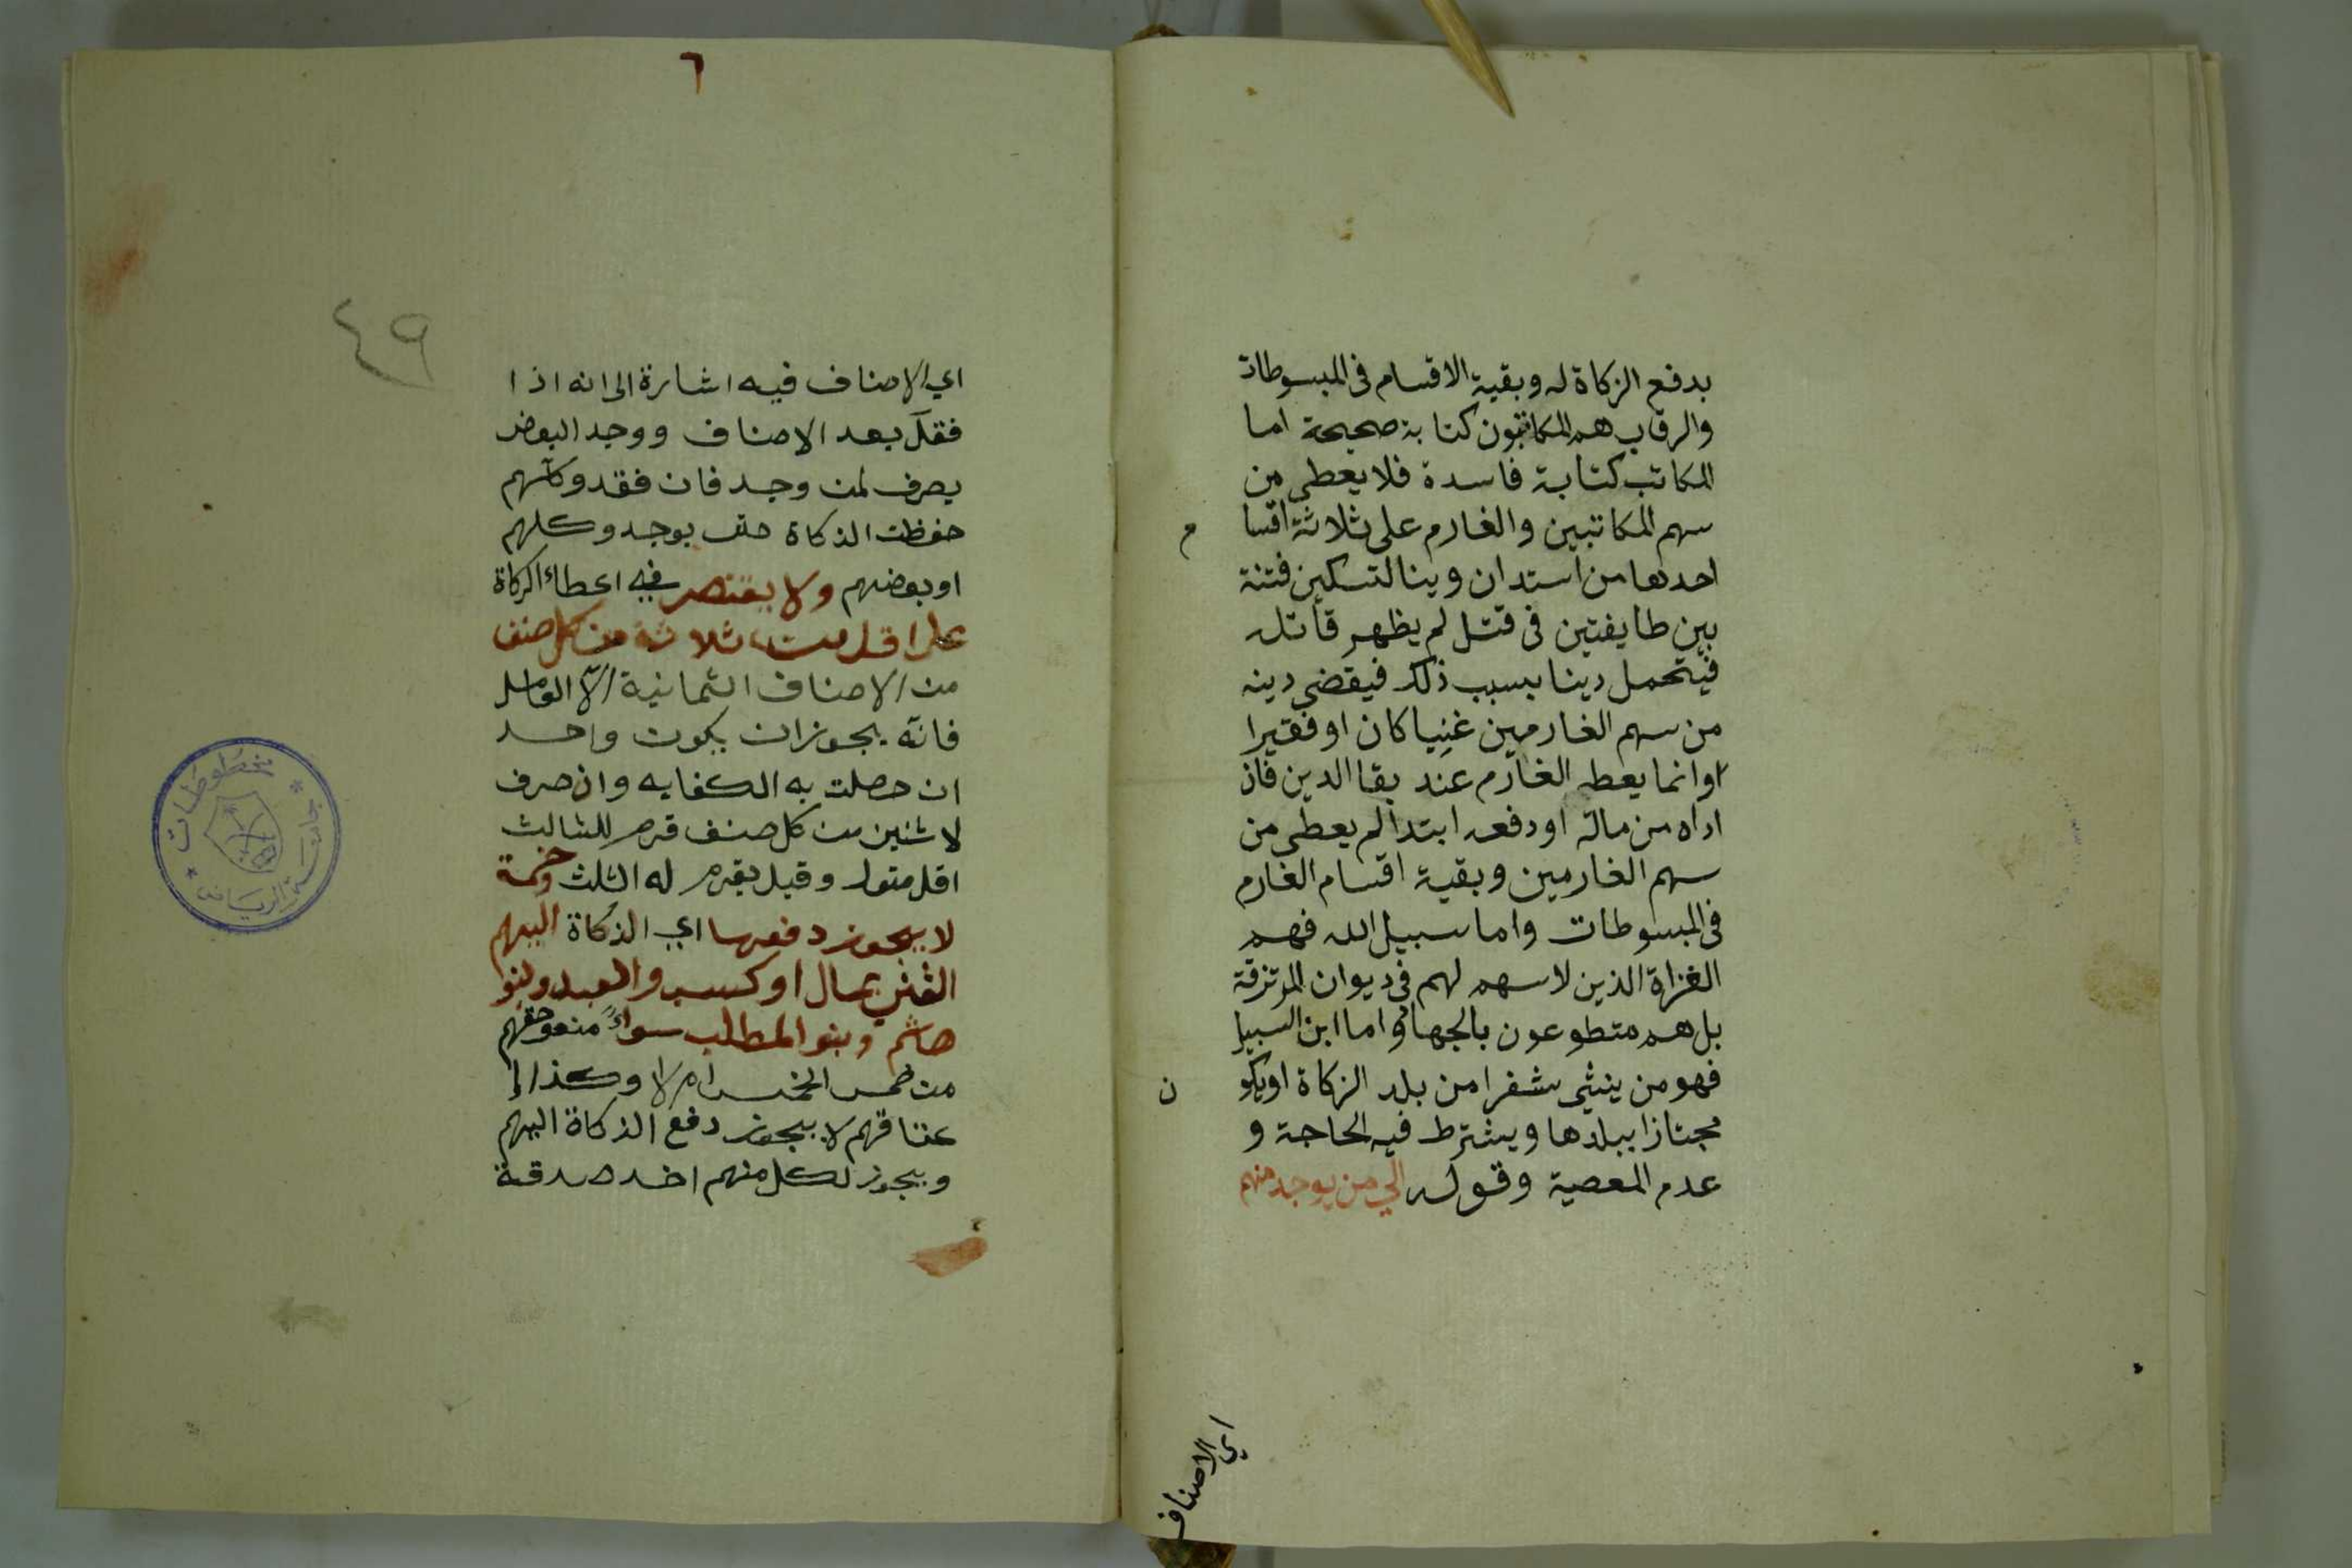 بدفع الزكاة له وبقية الاقسام في المبسوطات
والرقاب هم المكاتبون كتابة صحيحة اما
المكاتب كتابة فاسدة فلا يعطى من
سهم المكاتبين والغارم على ثلاثة اقسا
م
احدها من استدان دينا لتسكين فتنة
بين طايفتين في قتل لم يظهر قاتله
فيتحمل دينا بسبب ذلك فيقضي دينه
من سهم الغارمين غنيا كان او فقيرا
وانما يعطه الغارم عند بقا الدين فان
اداه من ماله او دفعه ابتدا لم يعطى من
سهم الغارمين وبقية اقسام الغارم
في المبسوطات واما سبيل الله فهم
الغزاة الذين لا سهم لهم في ديوان المرتزقة
بل هم متطوعون بالجهاد واما ابن السبيل
فهو من ينشي سفرا من بلد الزكاة او يكو
ن
مجتازا ببلدها ويشترط فيه الحاجة و
عدم المعصية وقوله الي من يوجد منهم
اي الاصناف
٦
٤٩
اي الاصناف فيه اشارة الى انه اذا
فقد بعد الاصناف ووجد البعض
يصرف لمن وجد فان فقدو كلهم
حفظت الزكاة حتى يوجدو كلهم
او بعضهم ولا يقتصر في اعطاء الزكاة
على اقل من ثلاثة من كل صنف
من الاصناف الثمانية الا العامل
فانه يجوز ان يكون واحد
ان حصلت به الكفايه وان صرف
لاثنين من كل صنف غرم للثالث
اقل متمول وقيل يغرم له الثلث وخمسة
لا يجوز دفعها اي الزكاة اليهم
الغني بمال او كسب والعبد وبنوا
هاشم وبنو المطلب سواءً منعو حقهم
من خمس الخمس ام لا وكذا
عتاقهم لا يجوز دفع الزكاة اليهم
ويجوز لكل منهم اخد صدقة
مخطوطات
جامعة الرياض